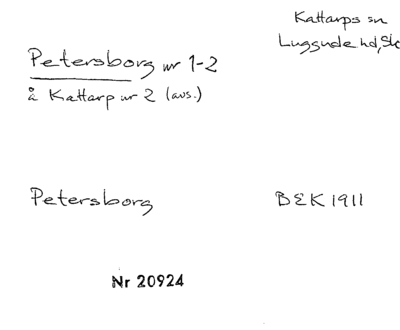 Kattarps sn
Luggude hd, Sk
Petersborg nr 1-2
å Kattarp nr 2 (avs.)
Petersborg BEK 1911
Nr 20924